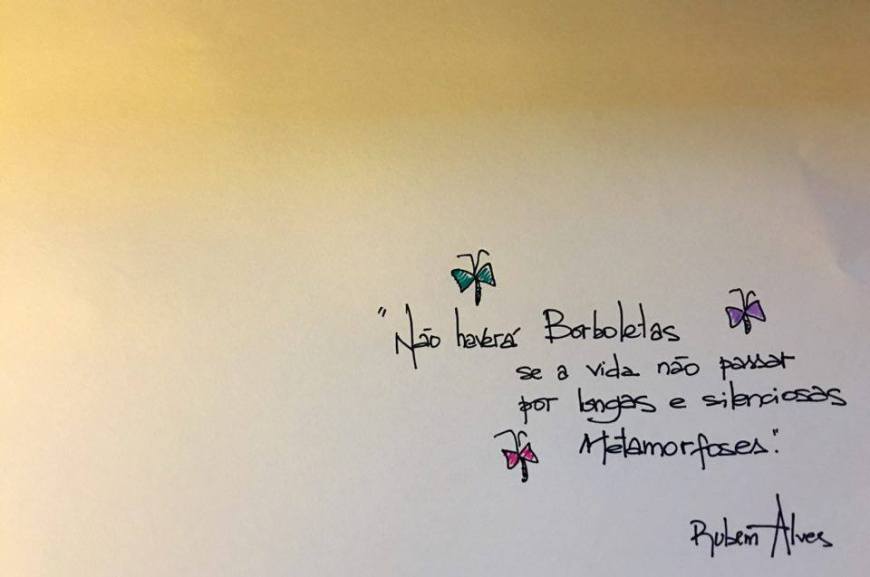 "Não haverá Borboletas
se a vida não passar
por longas e silenciosas
Metamorfoses."
Rubem Alves